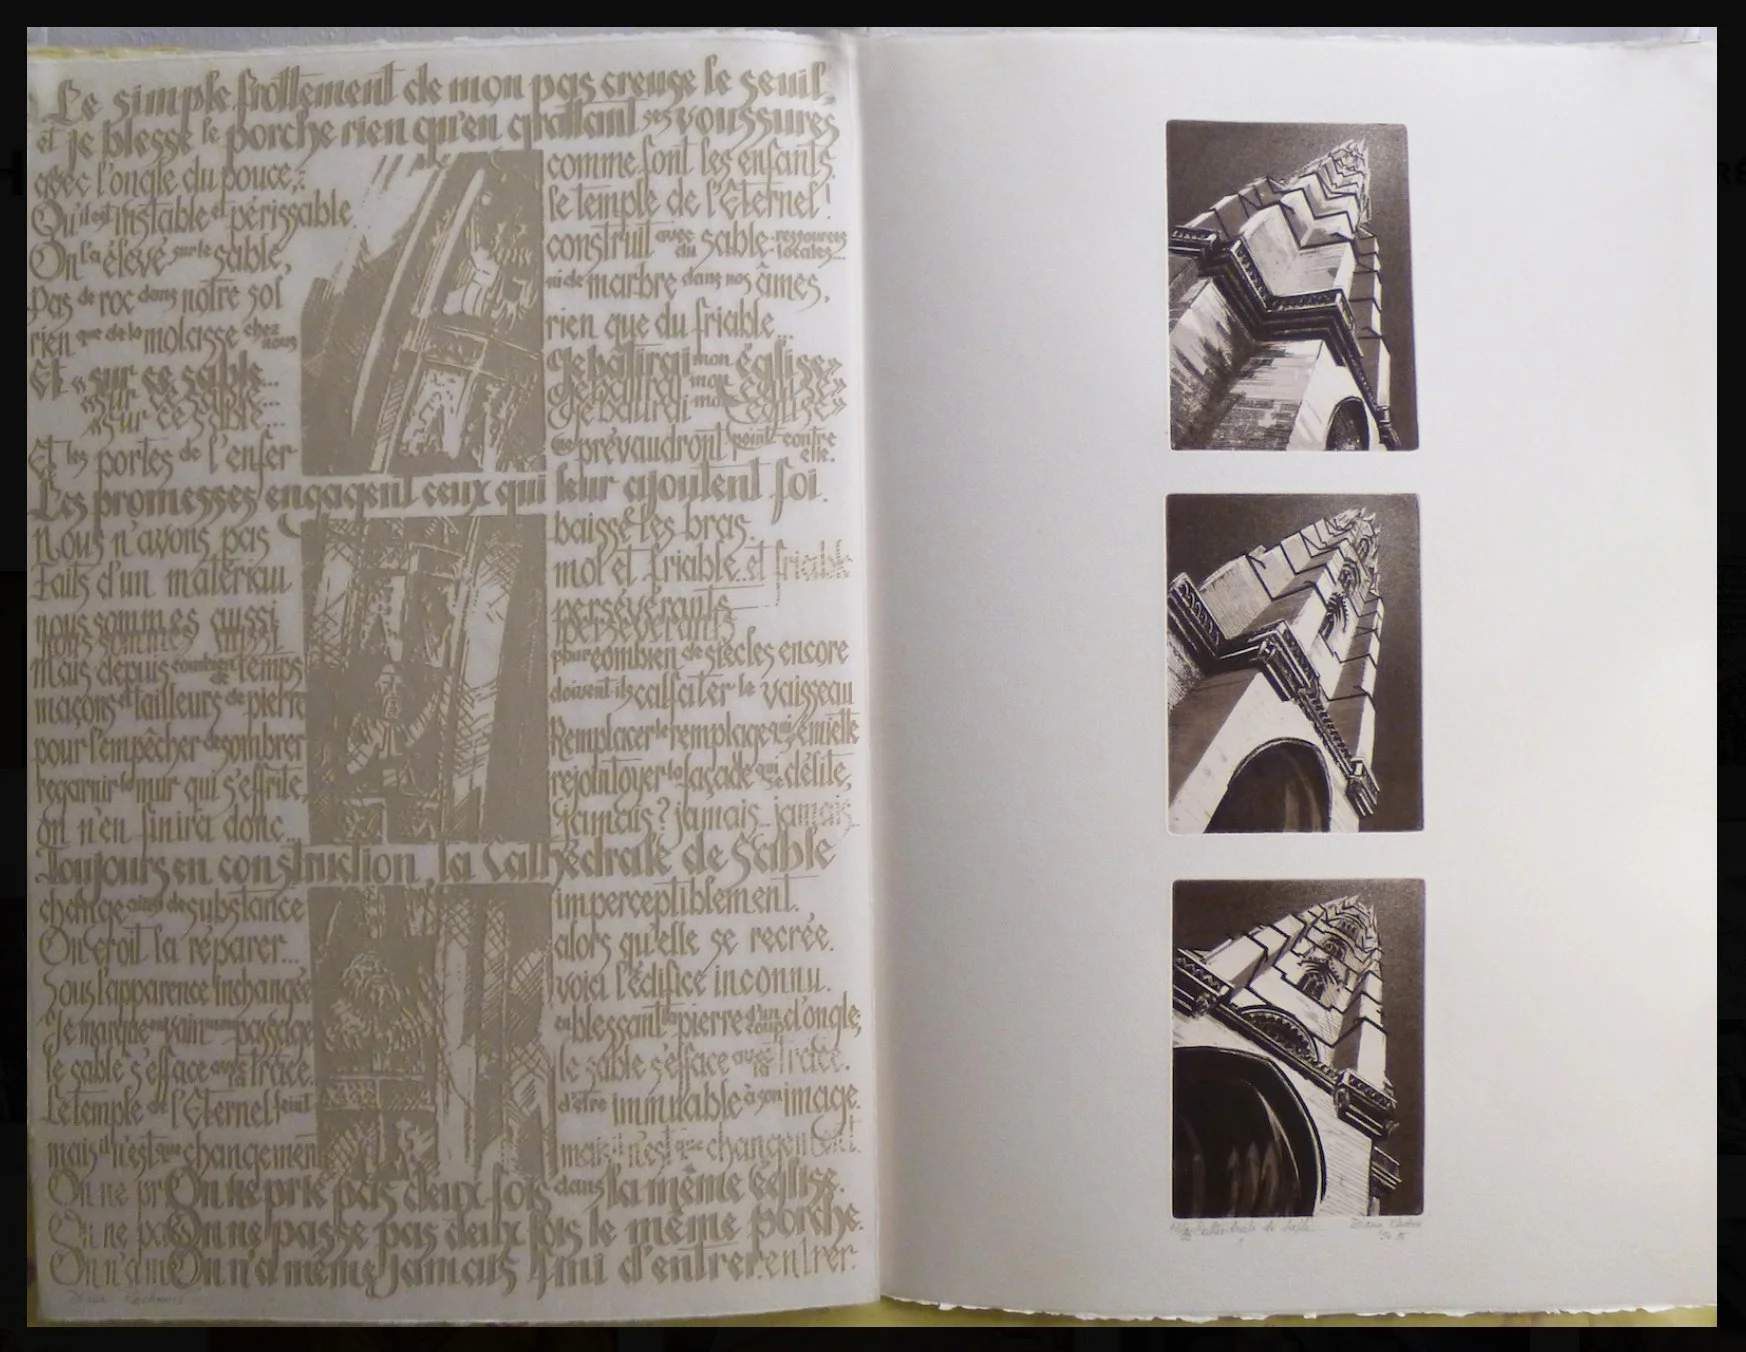 Le simple frottement de mon pas creuse le seuil,
et je blesse le porche rien qu'en grattant ses voussures
avec l'ongle du pouce, comme font les enfants.
Qu'il est instable et périssable le temple de l'Eternel!
On l'a élevé sur le sable, construit avec du sable, ressources locales...
Pas de roc dans notre sol ni de marbre dans nos âmes,
rien que de la molasse chez nous rien que du friable...
Et «sur ce sable... Je bâtirai mon église»
«sur ce sable... Je bâtirai mon église»
«sur ce sable... Je bâtirai mon église»
Et les portes de l'enfer ne prévaudront point contre elle.
Les promesses engagent ceux qui leur ajoutent foi.
Nous n'avons pas baissé les bras.
Faits d'un matériau mol et friable.. et friable
nous sommes aussi persévérants
nous sommes aussi persévérants
Mais depuis combien de temps pour combien de siècles encore
maçons et tailleurs de pierre doivent-ils calfater le vaisseau
pour l'empêcher de sombrer Remplacer le remplage qui s'émiette
regarnir le mur qui s'effrite, rejointoyer la façade qui se délite,
on n'en finira donc... jamais? jamais... jamais
Toujours en construction, la Cathédrale de Sable
change ainsi de substance imperceptiblement.
On croit la réparer... alors qu'elle se recrée.
Sous l'apparence inchangée voici l'édifice inconnu.
Je marque en vain mon passage en blessant la pierre d'un coup d'ongle,
le sable s'efface avec la trace. le sable s'efface avec la trace.
Le temple de l'Eternel feint d'être immuable à son image.
mais il n'est que changement mais il n'est que changement.
On ne pri On ne prie pas deux fois dans la même église.
On ne pa On ne passe pas deux fois le même porche.
On n'a m On n'a même jamais fini d'entrer. entrer.
Cathédrale de Sable